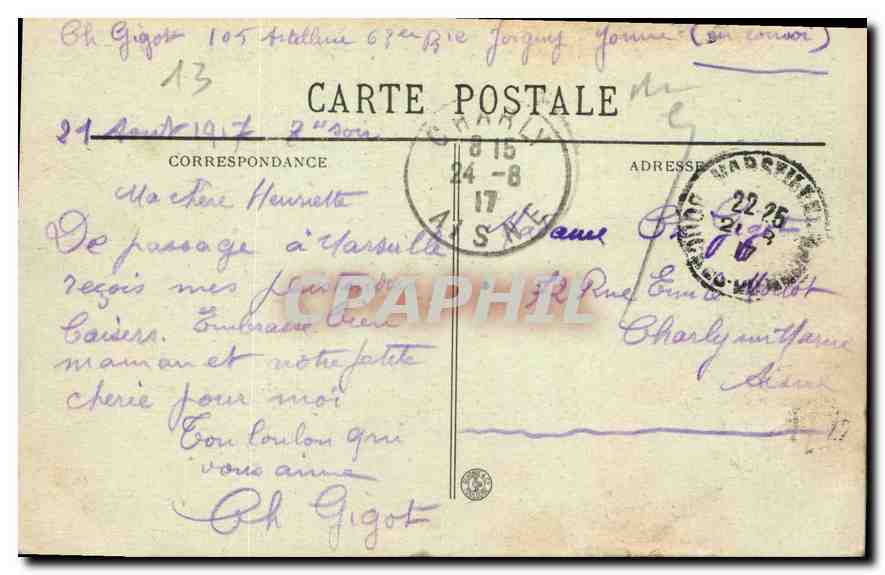 Ch Gigot 105 Artillerie 63eme Bie Joigny Yonne (en convoi)
13
CARTE POSTALE
21 Aout 1917 7h soir
CORRESPONDANCE
ADRESSE
CHARLY
8 15
24 -8
17
AISNE
MARSEILLE
22 25
21 8
17
BOUCHES-DU-RHONE
Ma chère Henriette
De passage à Marseille
reçois mes plus doux
baisers. Embrasse bien
maman et notre petite
cherie pour moi
Ton loulou qui
vous aime
Ch Gigot
Madame Ch Gigot
32 Rue Emile Morlot
Charly sur Marne
Aisne
CPAPHIL